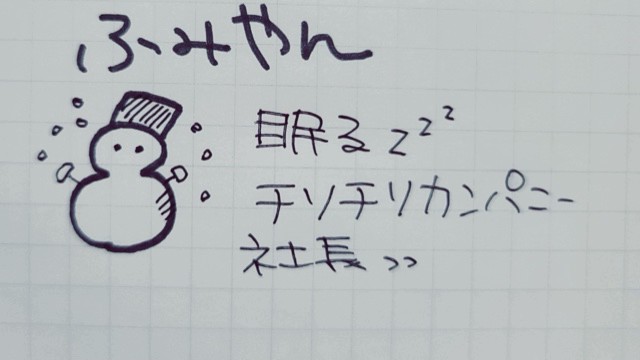 ふみやん
眠るzzz
チリチリカンパニー
社長 >>